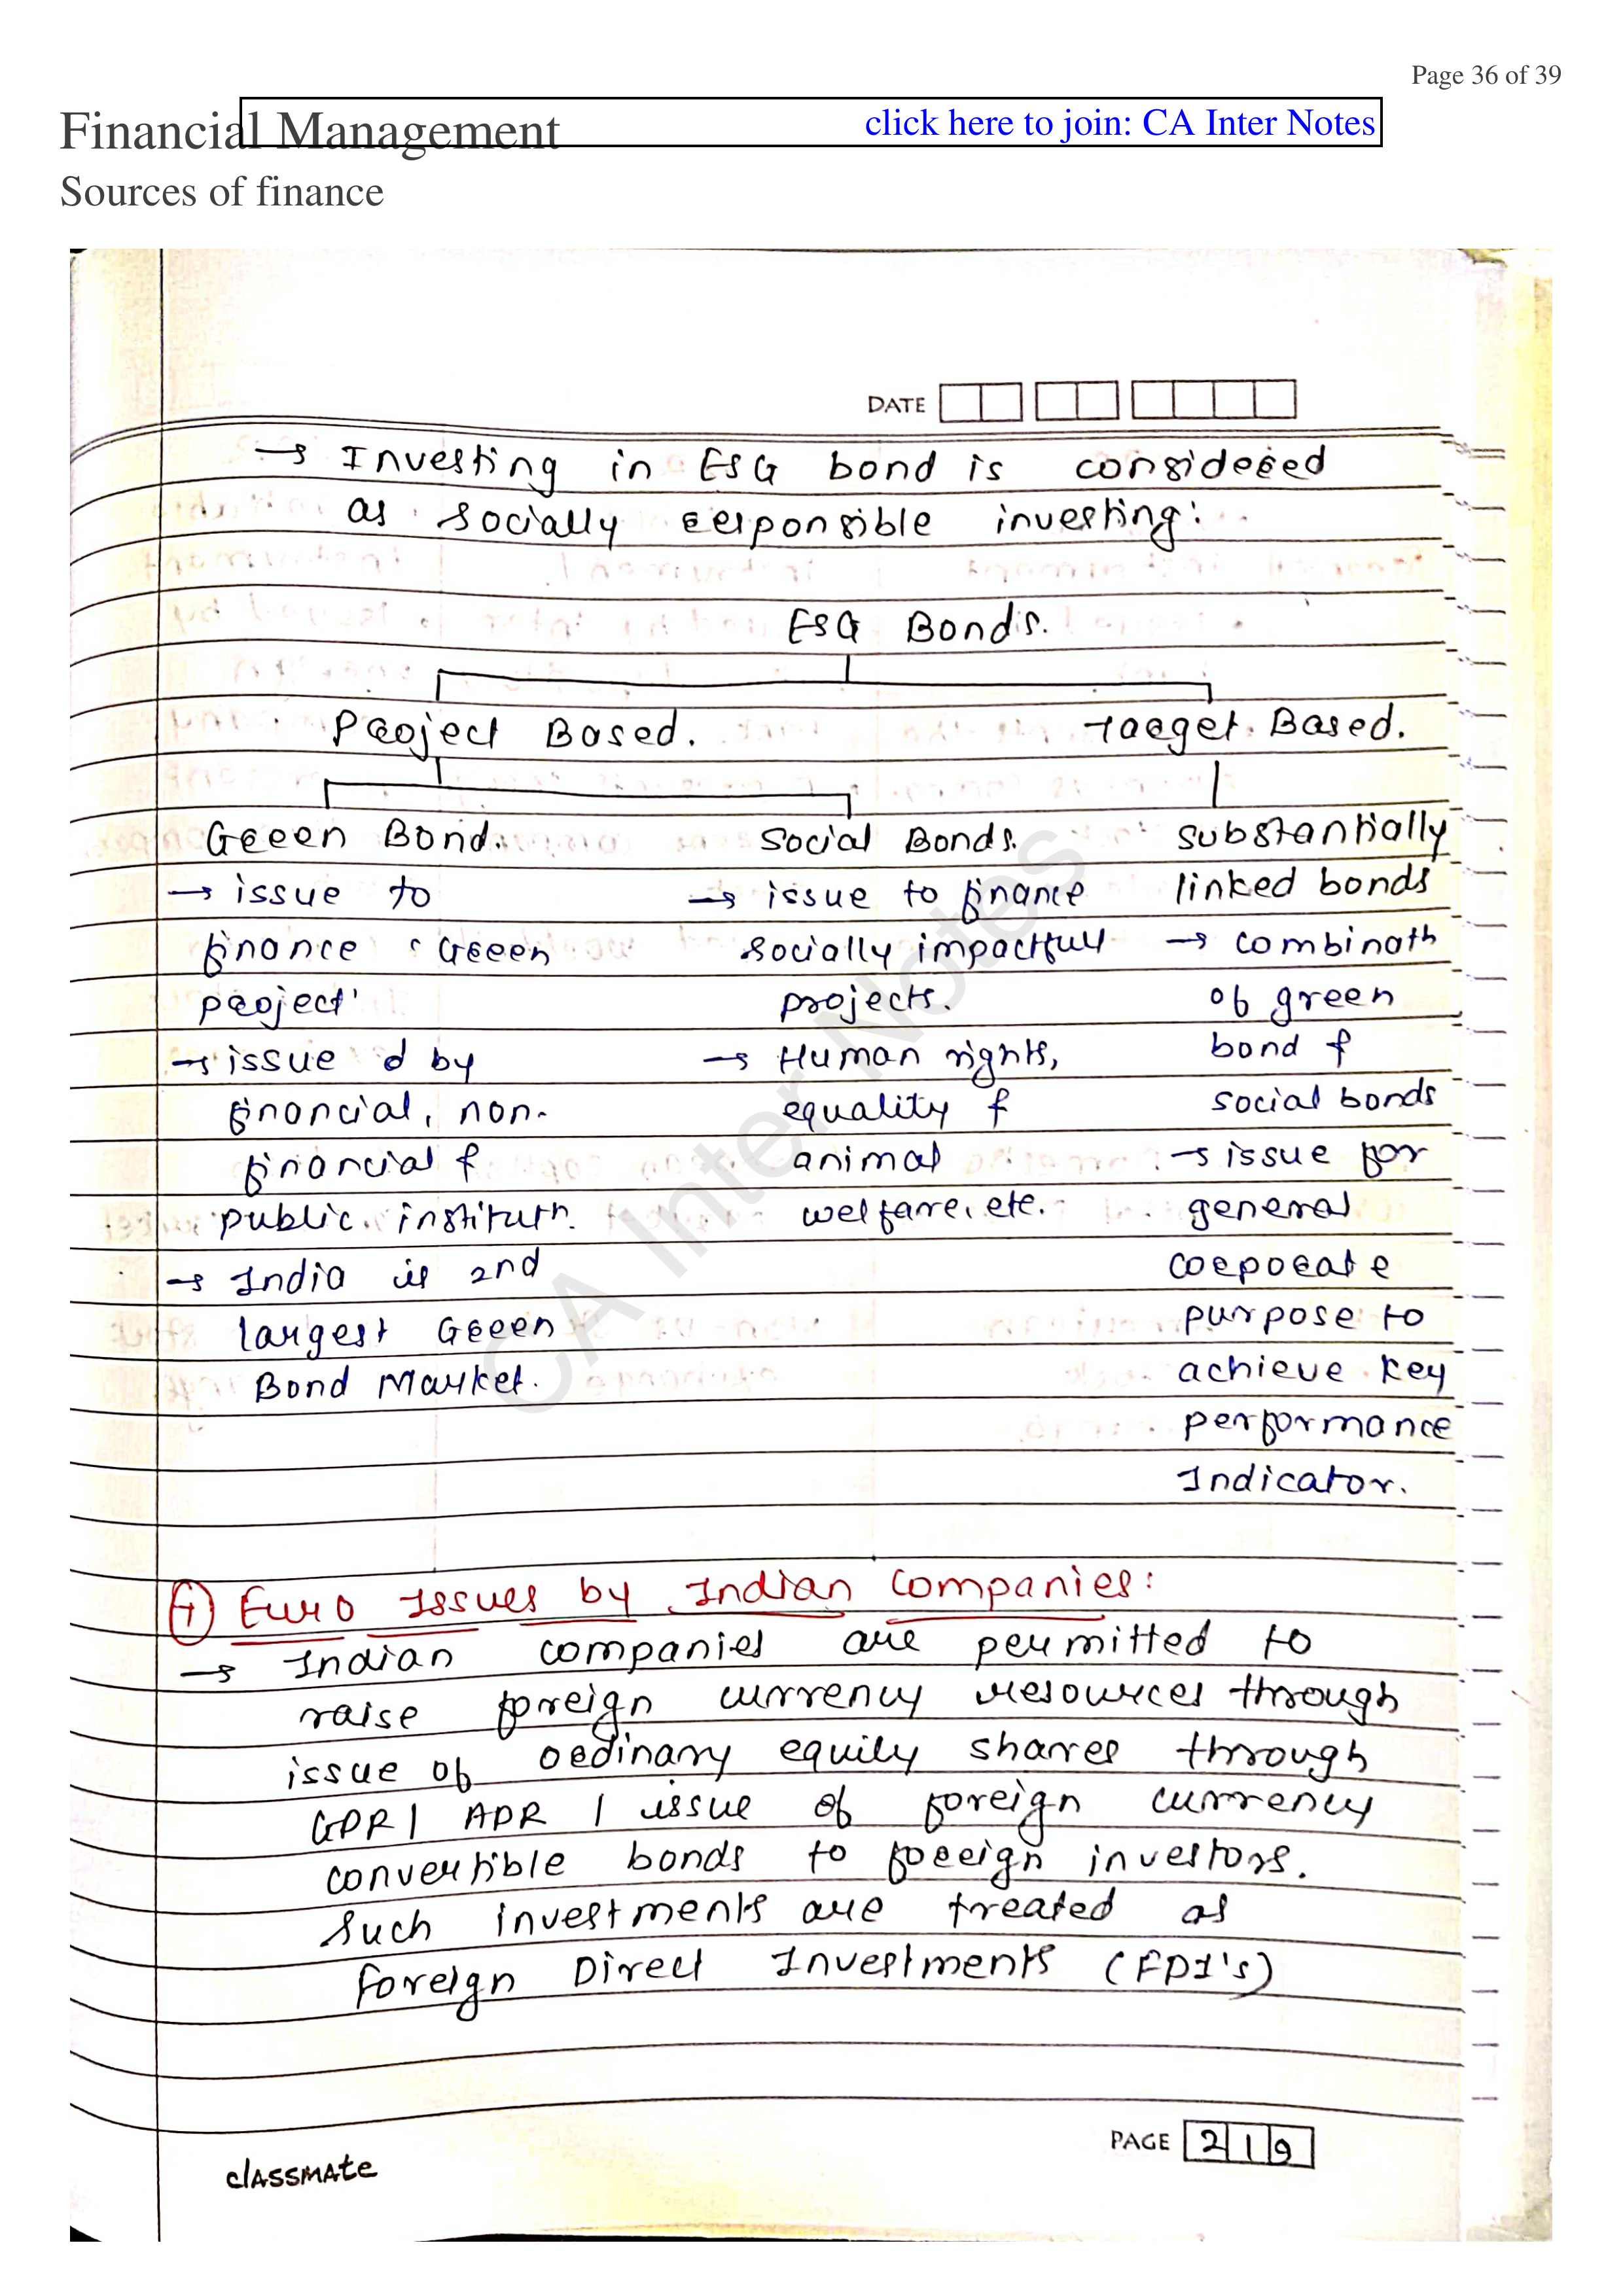 Page 36 of 39
Financial Management
click here to join: CA Inter Notes
Sources of finance
DATE
→ Investing in ESG bond is considered
as socially responsible investing:
ESG Bonds.
Project Based.
Target Based.
Green Bond.
→ issue to
finance Green
project
→ issue d by
financial, non-
financial &
public institutn.
→ India is 2nd
largest Green
Bond Market.
Social Bonds.
→ issue to finance
socially impactfull
projects.
→ Human rights,
equality &
animal
welfare, etc.
substantially
linked bonds
→ combinatn
of green
bond &
social bonds
→ issue for
general
corporate
purpose to
achieve key
performance
Indicator.
Euro Issues by Indian Companies:
→ Indian companies are permitted to
raise foreign currency resources through
issue of ordinary equity shares through
GDR| ADR | issue of foreign currency
convertible bonds to foreign investors.
Such investments are treated as
Foreign Direct Investments (FDI's)
PAGE 219
classmate
CA Inter Notes